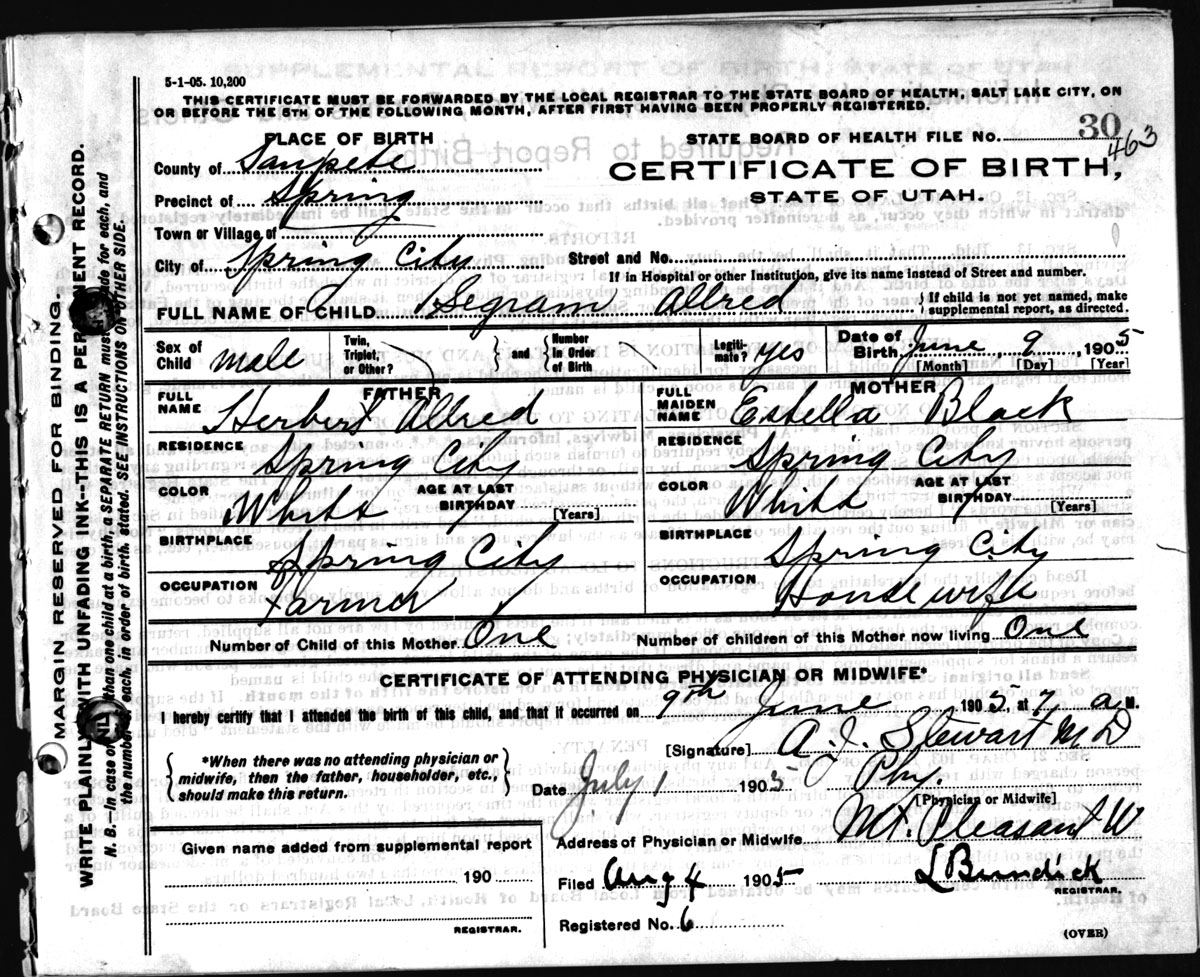 5-1-05. 10,200
THIS CERTIFICATE MUST BE FORWARDED BY THE LOCAL REGISTRAR TO THE STATE BOARD OF HEALTH, SALT LAKE CITY, ON
OR BEFORE THE 5TH OF THE FOLLOWING MONTH, AFTER FIRST HAVING BEEN PROPERLY REGISTERED.
PLACE OF BIRTH
STATE BOARD OF HEALTH FILE NO. 30 463
County of Sanpete
CERTIFICATE OF BIRTH,
Precinct of Spring
STATE OF UTAH.
Town or Village of
City of Spring City
Street and No.
If in Hospital or other Institution, give its name instead of Street and number.
FULL NAME OF CHILD Allred
{ If child is not yet named, make supplemental report, as directed.
Sex of Child male
Twin, Triplet, or Other? } and { Number In Order of Birth
Legitimate? yes
Date of Birth June 9 1905
[Month] [Day] [Year]
FATHER
FULL NAME Herbert Allred
RESIDENCE Spring City
COLOR White AGE AT LAST BIRTHDAY [Years]
BIRTHPLACE Spring City
OCCUPATION Farmer
MOTHER
FULL MAIDEN NAME Estella Black
RESIDENCE Spring City
COLOR White AGE AT LAST BIRTHDAY [Years]
BIRTHPLACE Spring City
OCCUPATION Housewife
Number of Child of this Mother One
Number of children of this Mother now living One
CERTIFICATE OF ATTENDING PHYSICIAN OR MIDWIFE*
I hereby certify that I attended the birth of this child, and that it occurred on 9th June 1905, at 7 a M.
[Signature] A. J. Stewart MD
{ *When there was no attending physician or midwife, then the father, householder, etc., should make this return. }
Date July 1 1905 Phy.
[Physician or Midwife]
Address of Physician or Midwife Mt. Pleasant
Given name added from supplemental report
190
REGISTRAR.
Filed Aug 4 1905 L Bundick
REGISTRAR.
Registered No. 6
(OVER)
MARGIN RESERVED FOR BINDING.
WRITE PLAINLY WITH UNFADING INK--THIS IS A PERMANENT RECORD.
N. B.--In case of more than one child at a birth, a SEPARATE RETURN must be made for each, and
the number of each, in order of birth, stated. SEE INSTRUCTIONS ON OTHER SIDE.